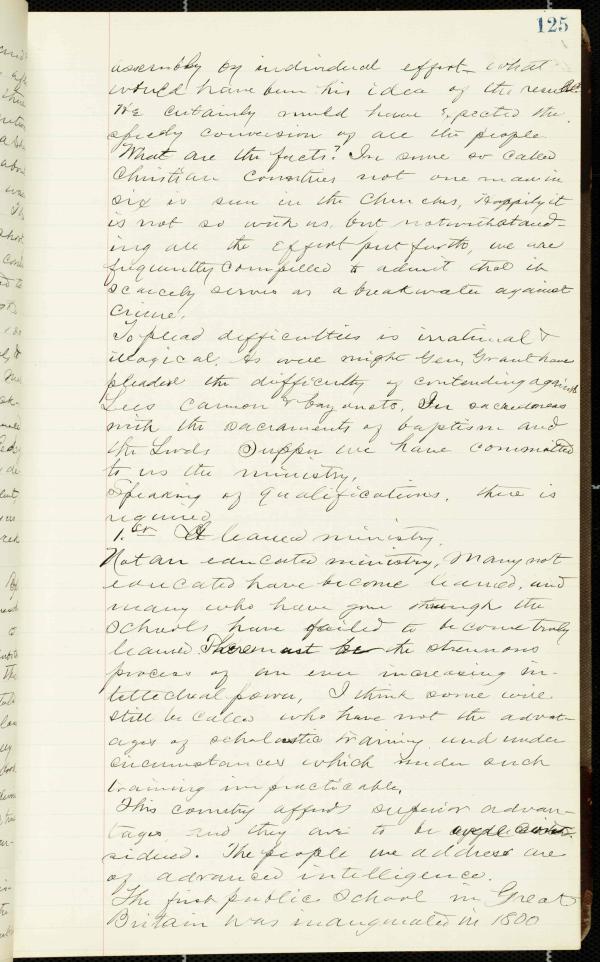 125
assembly by individual effort what
would have been his idea of the result.
We certainly would have expected the
speedy conversion of all the people
What are the facts? In some so called
Christian countries not one man in
six is seen in the Churches, Happily it
is not so with us, but notwithstand-
ing all the Effort put forth, we are
frequently compelled to admit that it
scarcely serves as a breakwater against
crime.
To plead difficulties is irrational &
illogical. As well might Gen, Grant have
pleaded the difficulty of contending against
Lees Cannon & bayonets. In sacredness
with the sacraments of baptism and
the Lords Supper we have committed
to us the ministry.
Speaking of qualifications, there is
required
1. A learned ministry.
Not an educated ministry, Many not
educated have become learned, and
many who have gone through the
schools have failed to become truly
learned. There must be the strenuous
process of an ever increasing in-
tellectual power, I think some will
still be called who have not the advat-
ages of scholastic training and under
circumstances which render such
training impracticable.
This country affords superior advan-
tages and they are to be
sidered. The people we address are
of advanced intelligence.
The first public School in Great
Britain was inaugurated in 1800